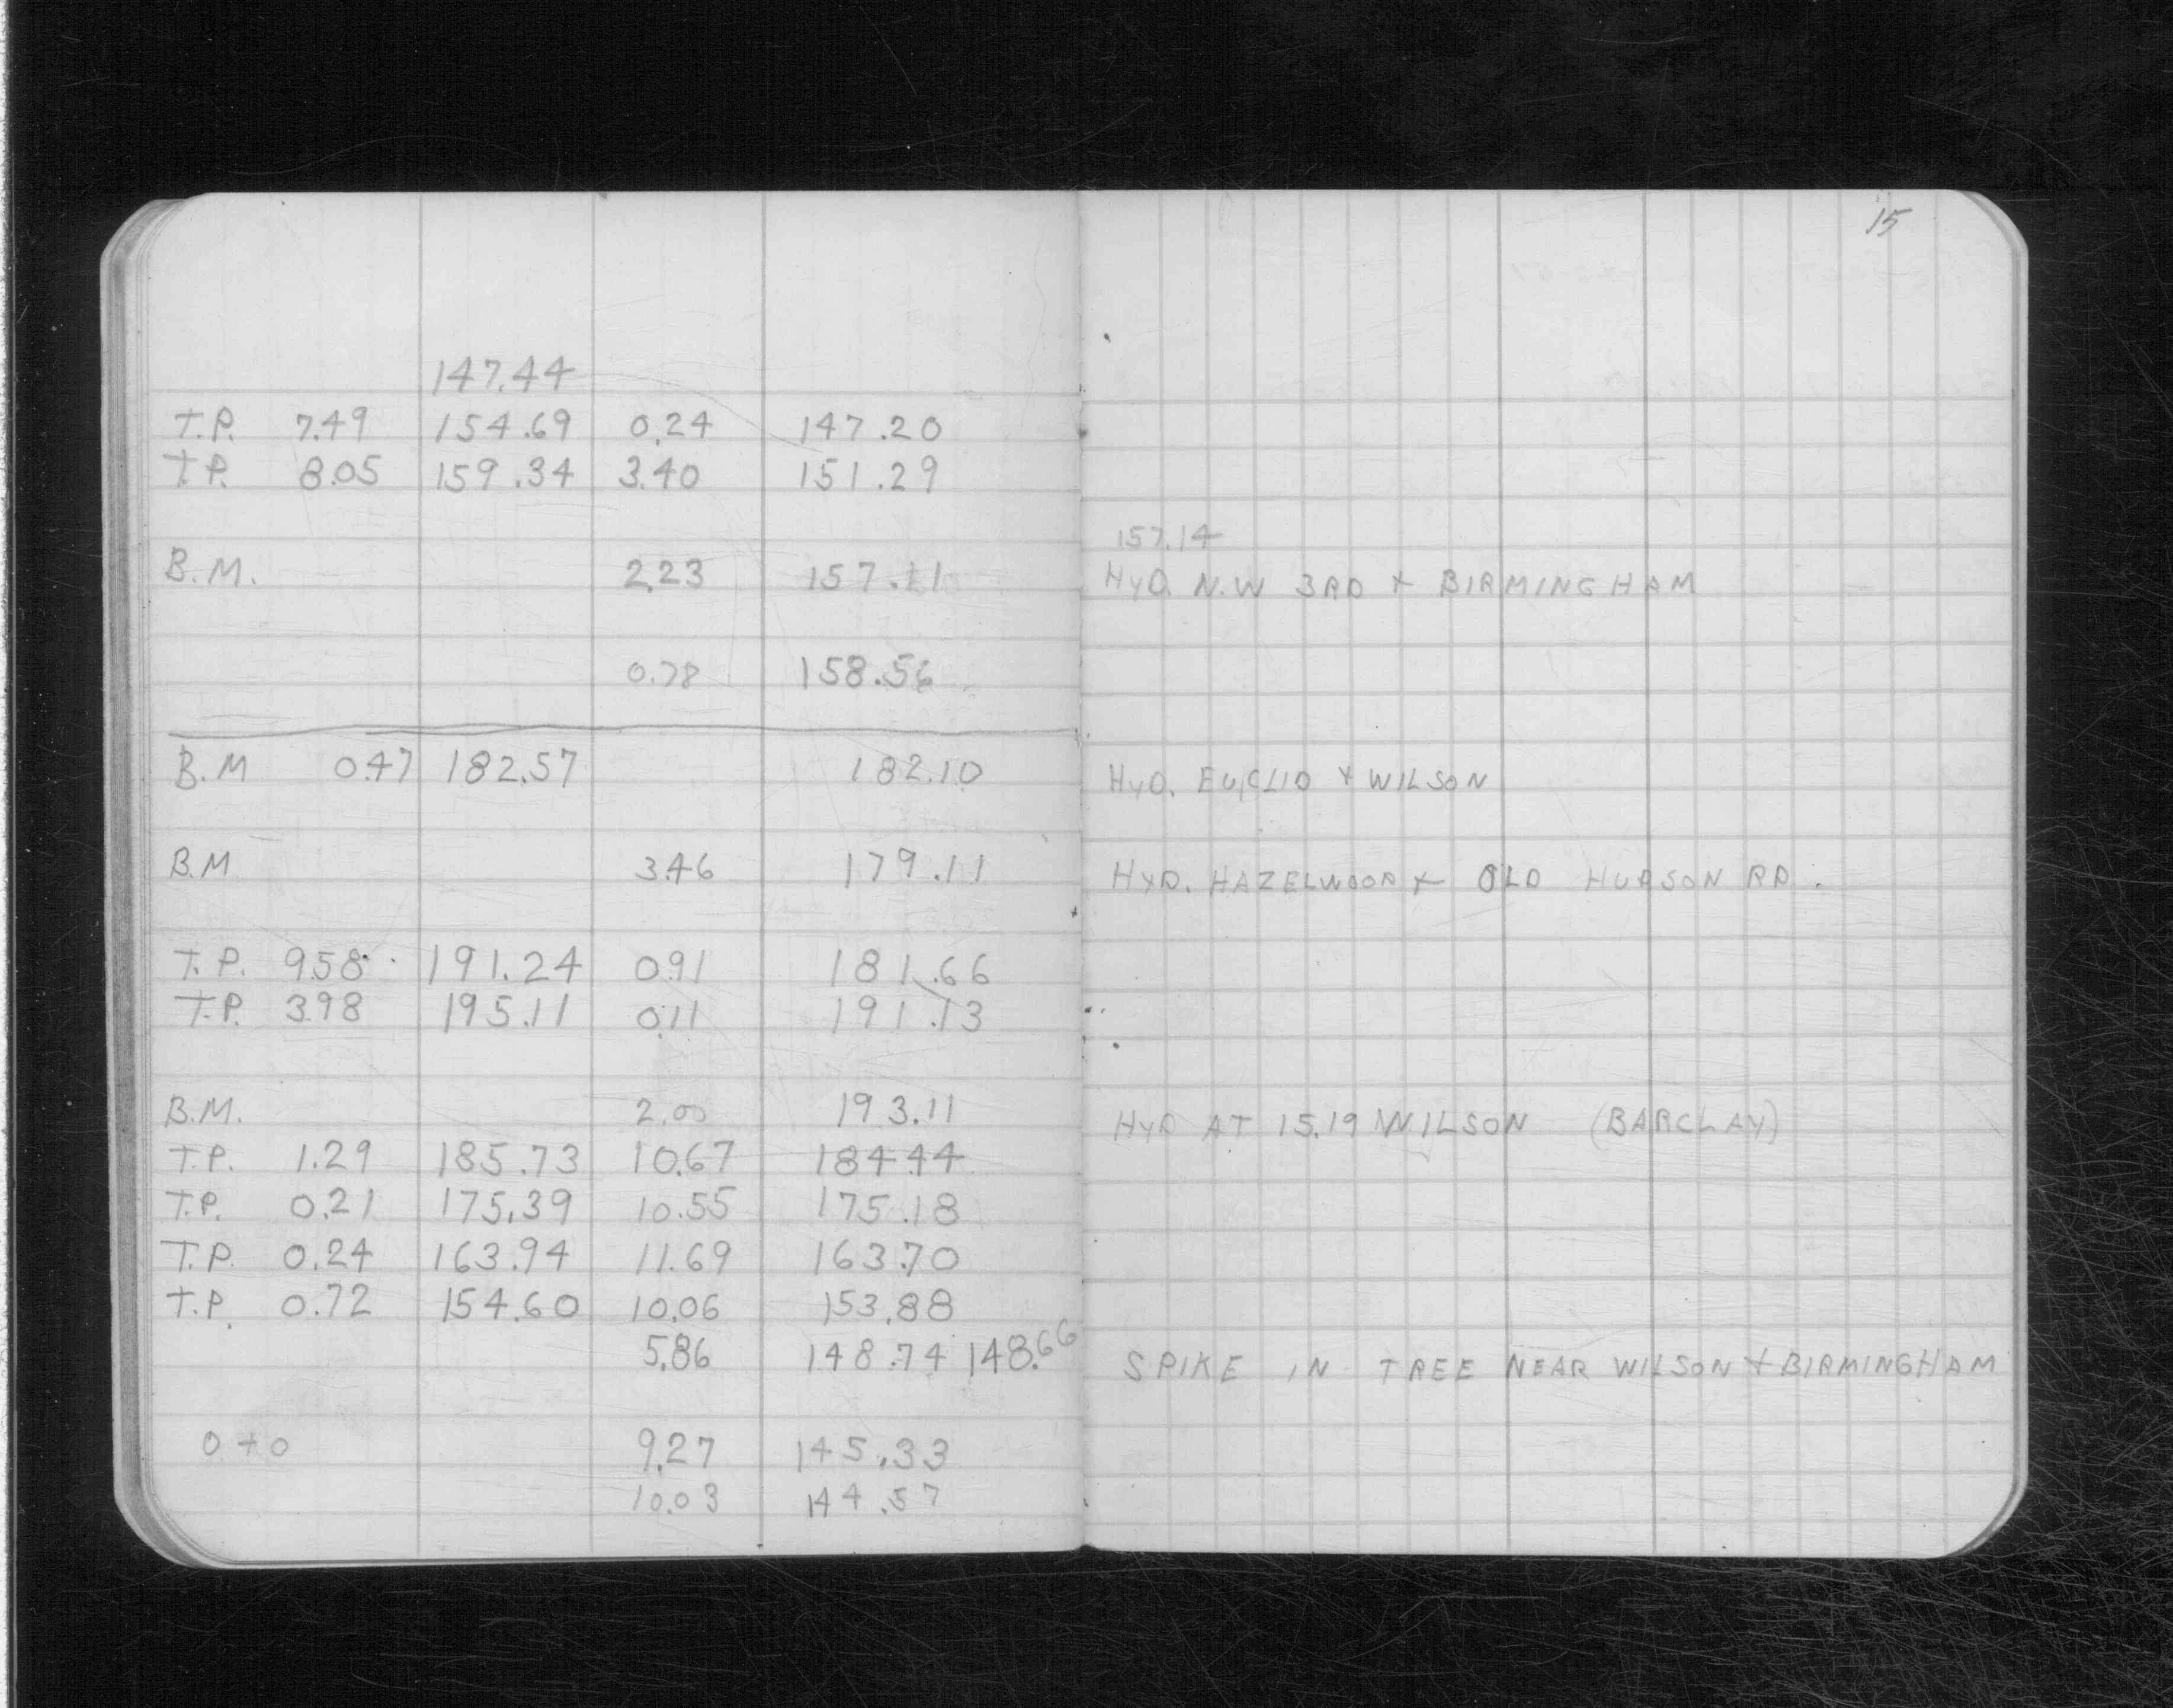 15
147.44
T.P. 7.49 154.69 0.24 147.20
T.P. 8.05 159.34 3.40 151.29
157.14
B.M. 2.23 157.11 HYD. N.W 3RD + BIRMINGHAM
0.78 158.56
B.M 0.47 182.57 182.10 HYD. EUCLID + WILSON
B.M 3.46 179.11 HYD. HAZELWOOD + OLD HUDSON RD.
T.P. 9.58 191.24 0.91 181.66
T.P. 3.98 195.11 0.11 191.13
B.M. 2.00 193.11 HYD AT 15.19 WILSON (BARCLAY)
T.P. 1.29 185.73 10.67 184.44
T.P. 0.21 175.39 10.55 175.18
T.P. 0.24 163.94 11.69 163.70
T.P. 0.72 154.60 10.06 153.88
5.86 148.74 148.66 SPIKE IN TREE NEAR WILSON + BIRMINGHAM
0+0 9.27 145.33
10.03 144.57